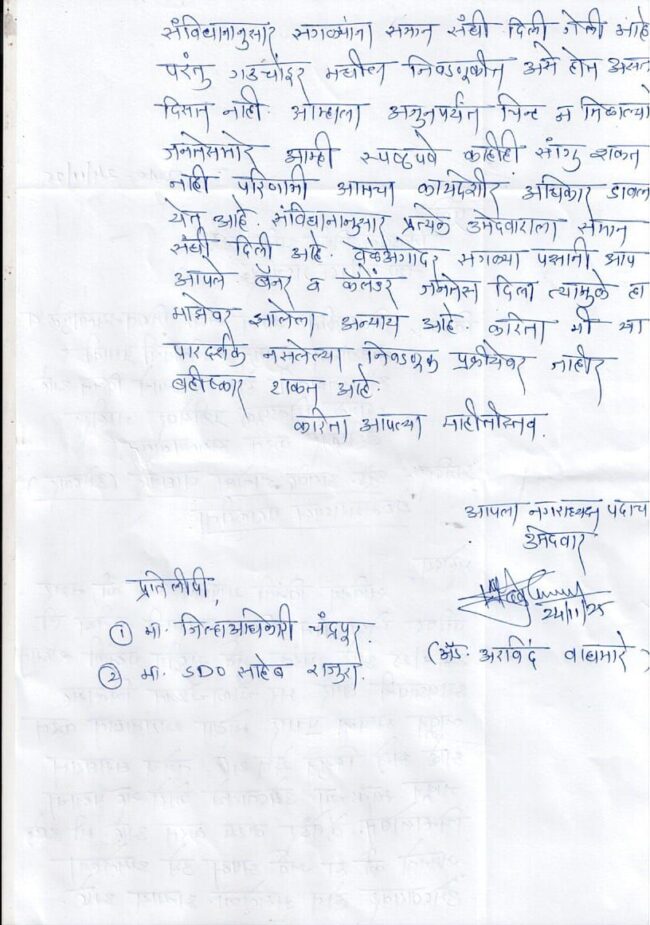 संविधानानुसार सगळ्यांना समान संधी दिली गेली आहे
परंतु गडचांदूर मधील निवडणूकीत असे होत असत
दिसत नाही. आम्हाला अजुनपर्यंत चिन्ह न मिळाल्या
जनतेसमोर आम्ही स्पष्टपणे काहीही सांगु शकत
नाही परिणामी आमचा कायदेशीर अधिकार डावल
येत आहे. संविधानानुसार प्रत्येक उमेदवाराला समान
संधी दिली आहे. वेळेअगोदर सगळ्या पक्षानी आप
आपले बॅनर व कॅलेंडर जनतेस दिला त्यामुळे हा
माझेवर झालेला अन्याय आहे. करिता मी या
पारदर्शक नसलेल्या निवडणूक प्रक्रीयेवर जाहीर
बहीष्कार टाकत आहे.
करिता आपल्या माहीतीस्तव.
आपला नगराध्यक्ष पदाचा
उमेदवार
24/11/25
(अॅड. अरविंद वाघमारे)
प्रतिलीपी,
① मा. जिल्हाअधिकारी चंद्रपूर.
② मा. SDO साहेब राजुरा.